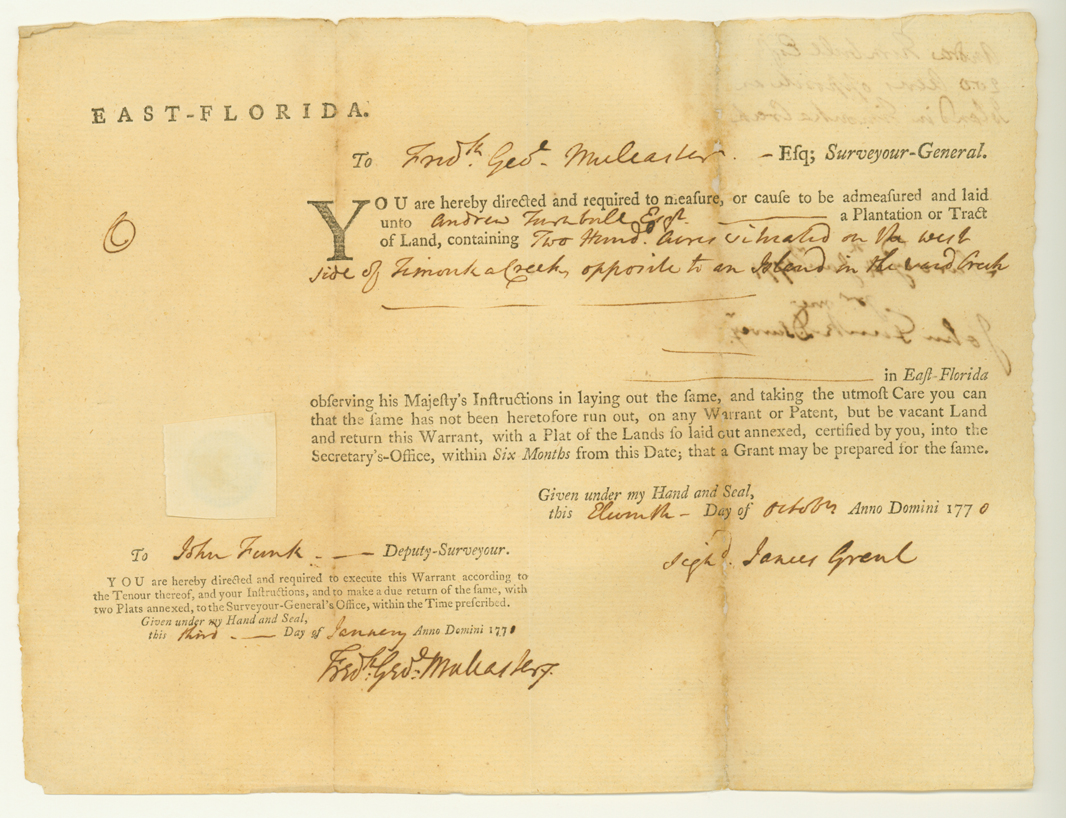 EAST-FLORIDA.
To Fredk. Geoe. Mulcaster. - Eſq; Surveyour-General.
YOU are hereby directed and required to meaſure, or cauſe to be admeaſured and laid
unto Andrew Turnbull Esqr. a Plantation or Tract
of Land, containing Two Hundd. Acres situated on the west
side of Timouka Creek, opposite to an Island in the said Creek
in Eaſt-Florida
obſerving his Majeſty's Inſtructions in laying out the ſame, and taking the utmoſt Care you can
that the ſame has not been heretofore run out, on any Warrant or Patent, but be vacant Land
and return this Warrant, with a Plat of the Lands ſo laid out annexed, certified by you, into the
Secretary's-Office, within Six Months from this Date; that a Grant may be prepared for the ſame.
Given under my Hand and Seal,
this Eleventh - Day of October Anno Domini 1770
Sighd. James Grant
To John Funk - Deputy-Surveyour.
YOU are hereby directed and required to execute this Warrant according to
the Tenour thereof, and your Inſtructions, and to make a due return of the ſame, with
two Plats annexed, to the Surveyour-General's Office, within the Time preſcribed.
Given under my Hand and Seal,
this third - Day of January Anno Domini 1771
Fredk. Geoe. Mulcaster